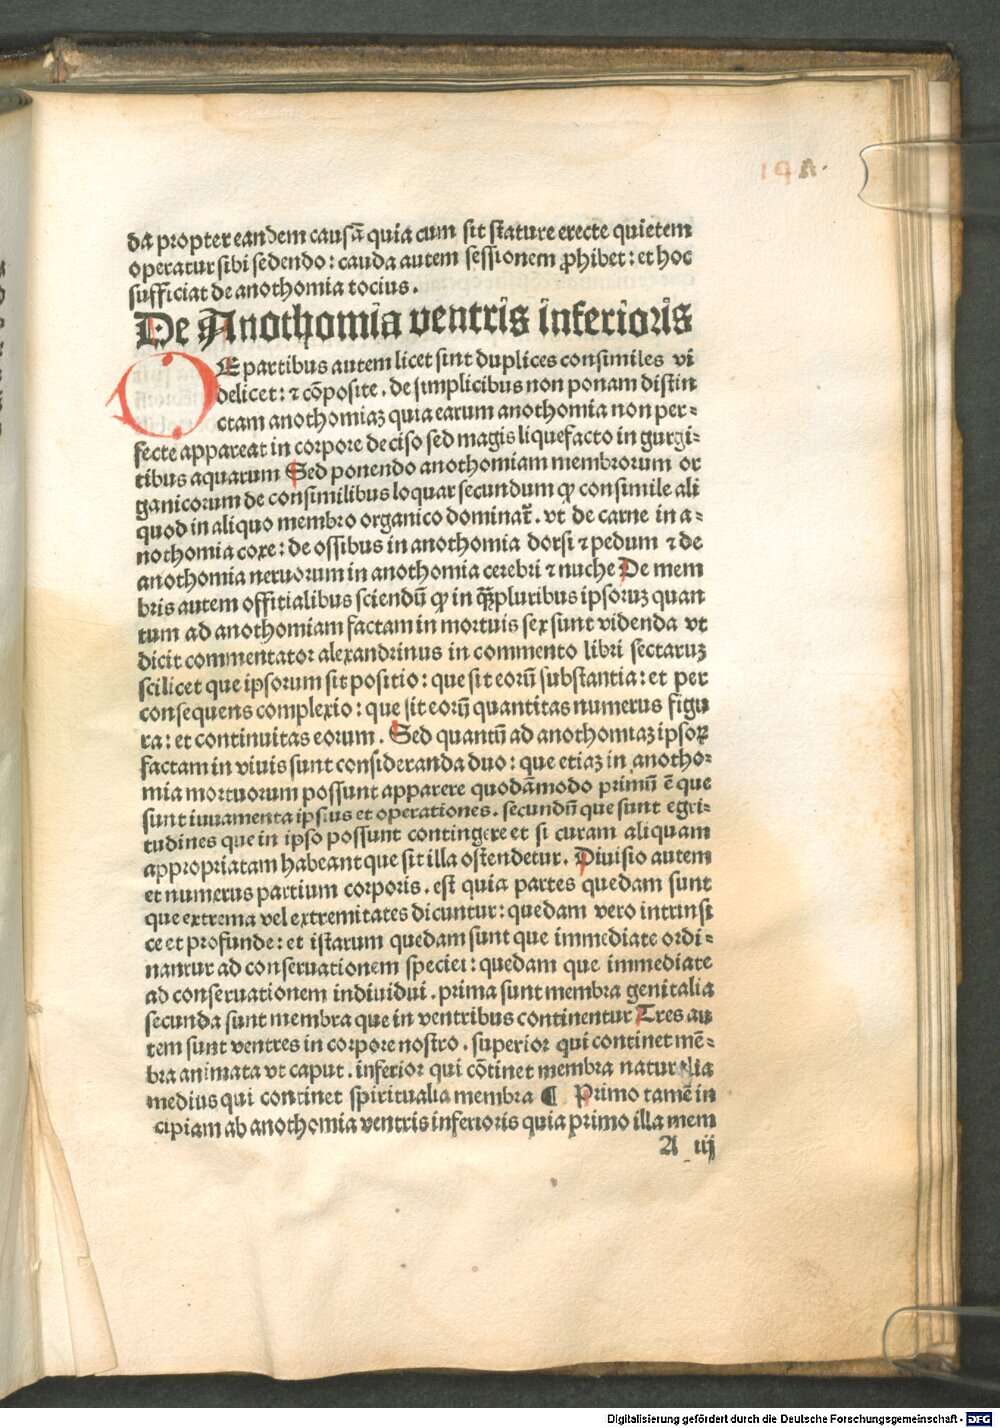 da propter eandem causã quia cum sit stature erecte quietem
operatur sibi sedendo: cauda autem sessionem ꝓhibet: et hoc
sufficiat de anothomia tocius.
De Anothomia ventris inferioris
DE partibus autem licet sint duplices consimiles vi
delicet: ⁊ cõposite. de simplicibus non ponam distin
ctam anothomiaꝫ quia earum anothomia non per-
fecte appareat in corpore deciso sed magis liquefacto in gurgi-
tibus aquarum Sed ponendo anothomiam membrorum or
ganicorum de consimilibus loquar secundum ꝙ consimile ali
quod in aliquo membro organico dominat᷑. vt de carne in a-
nothomia coxe: de ossibus in anothomia dorsi ⁊ pedum ⁊ de
anothomia neruorum in anothomia cerebri ⁊ nuche De mem
bris autem offitialibus sciendũ ꝙ in pluribus ipsoruꝫ quan
tum ad anothomiam factam in mortuis sex sunt videnda vt
dicit commentator alexandrinus in commento libri sectaruꝫ
scilicet que ipsorum sit positio: que sit eorũ substantia: et per
consequens complexio: que sit eorũ quantitas numerus figu
ra: et continuitas eorum. Sed quantũ ad anothomiaꝫ ipsoꝝ
factam in viuis sunt consideranda duo: que etiaꝫ in anotho-
mia mortuorum possunt apparere quodãmodo primũ ẽ que
sunt iuuamenta ipsius et operationes. secundũ que sunt egri-
tudines que in ipso possunt contingere et si curam aliquam
appropriatam habeant que sit illa ostendetur. Diuisio autem
et numerus partium corporis. est quia partes quedam sunt
que extrema vel extremitates dicuntur: quedam vero intrinsi
ce et profunde: et istarum quedam sunt que immediate ordi-
nantur ad conseruationem speciei: quedam que immediate
ad conseruationem indiuidui. prima sunt membra genitalia
secunda sunt membra que in ventribus continentur Tres au
tem sunt ventres in corpore nostro. superior qui continet mẽ-
bra animata vt caput. inferior qui cõtinet membra naturalia
medius qui continet spiritualia membra ¶ Primo tamẽ in
cipiam ab anothomia ventris inferioris quia primo illa mem
A iij
Digitalisierung gefördert durch die Deutsche Forschungsgemeinschaft - DFG